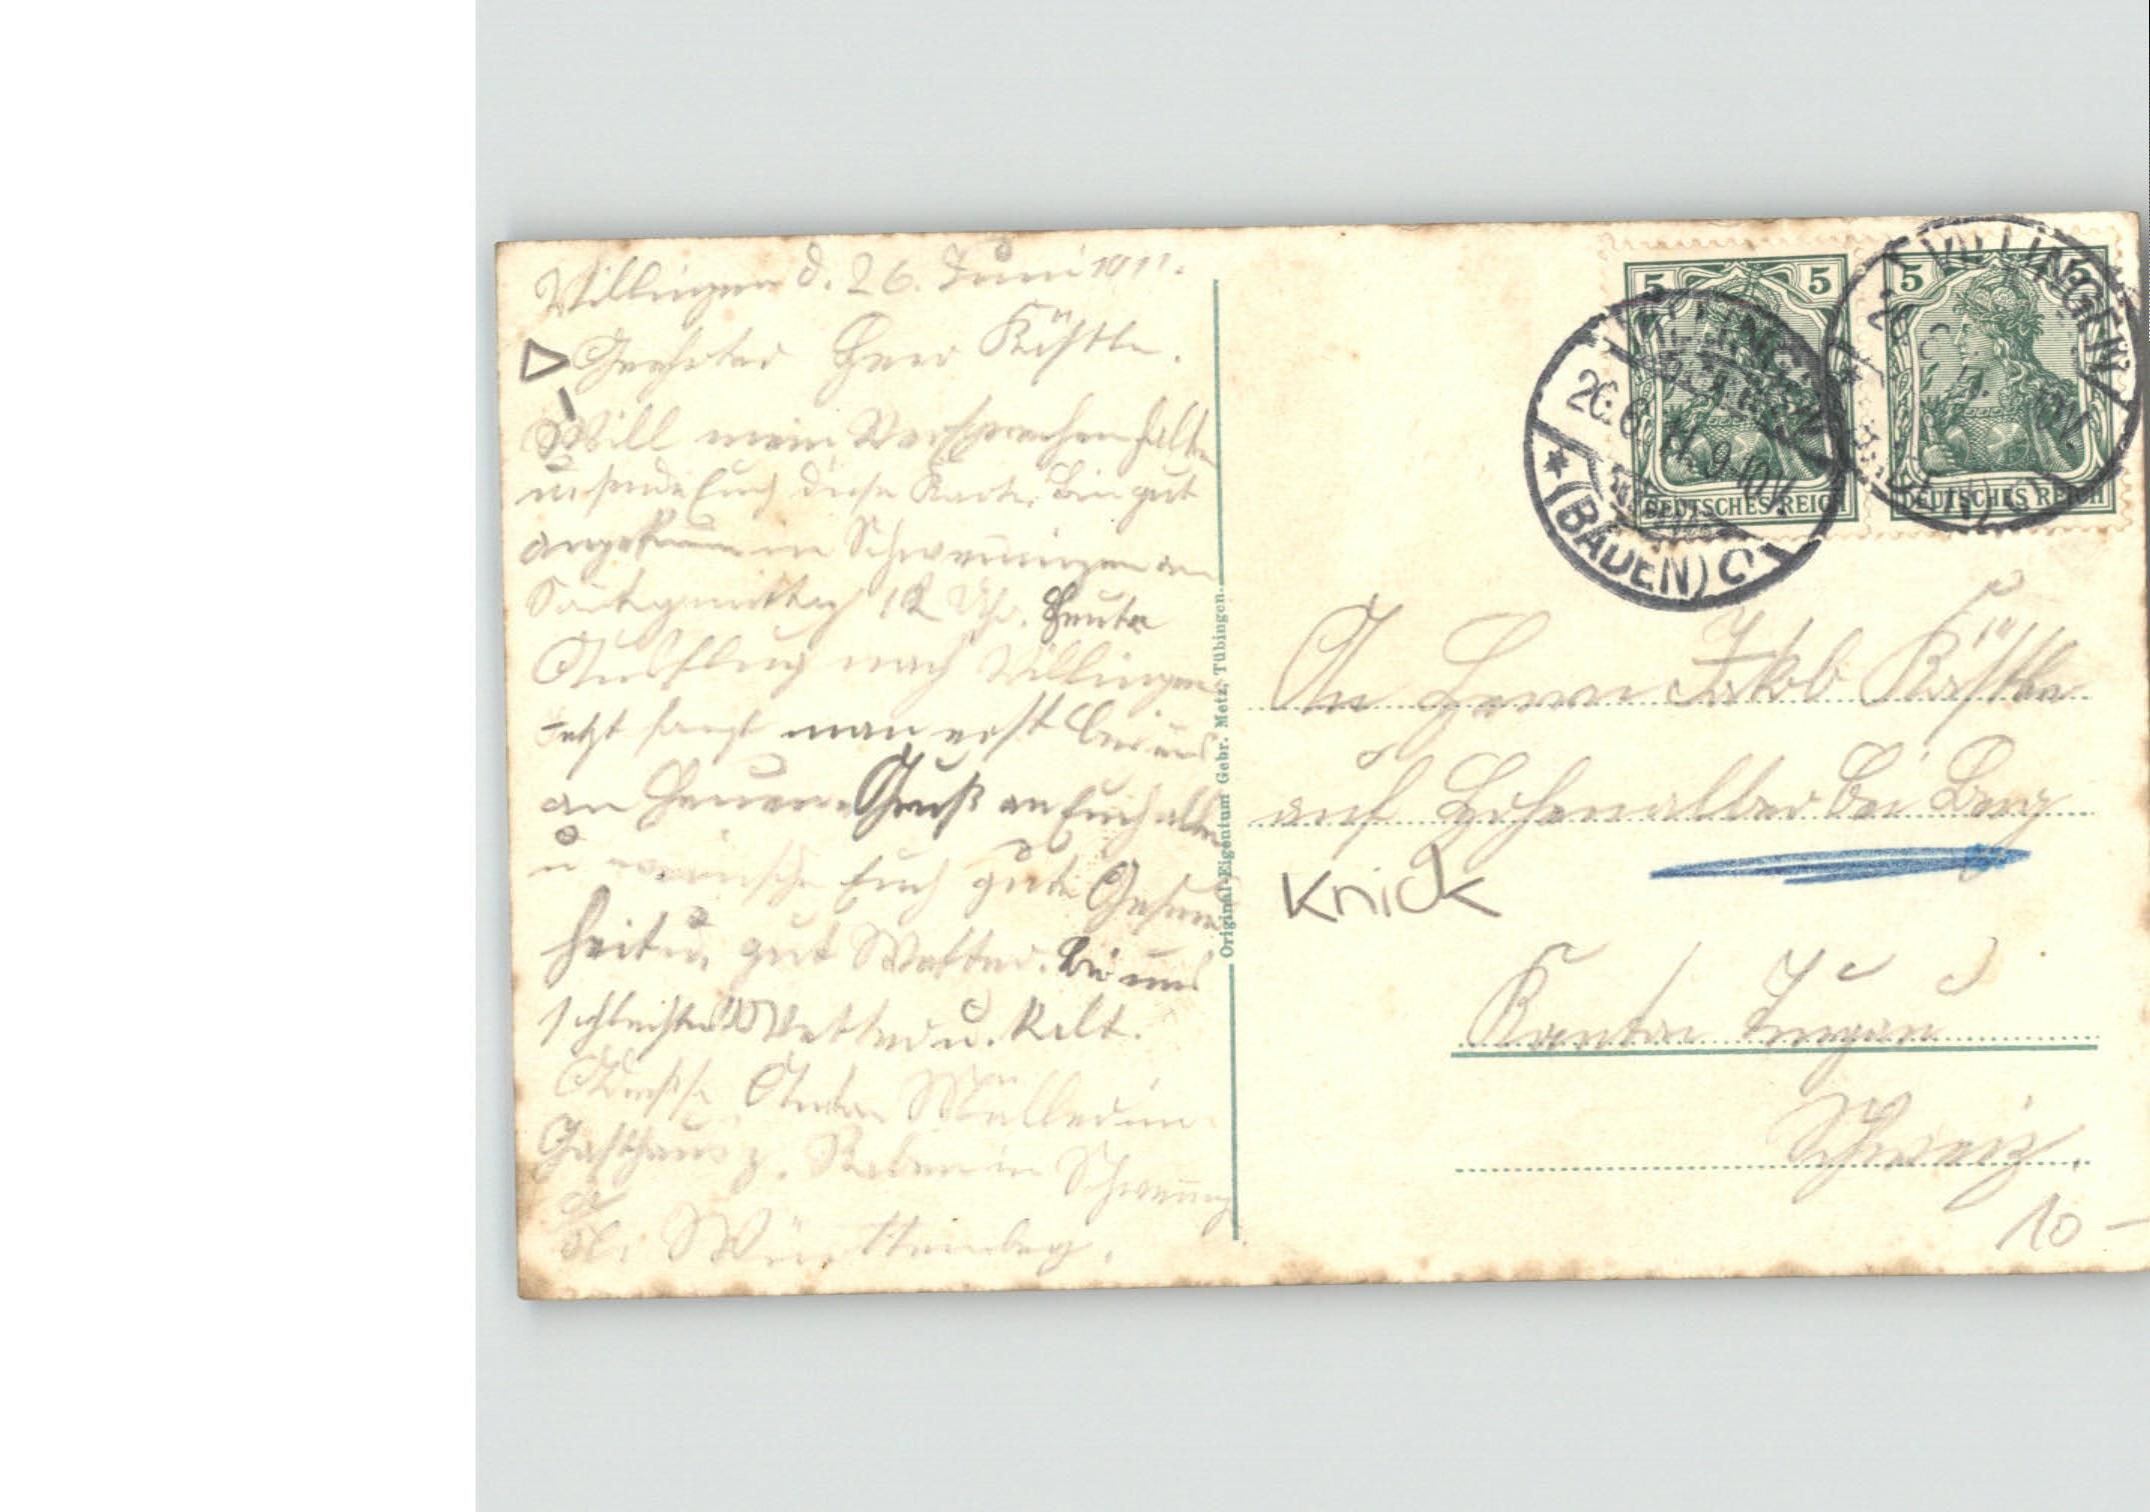 Villingen d. 26. Juni 1911.
Geehrter Herr Kästle.
Will mein Versprechen halten
u. sende Euch diese Karte. Bin gut
angekommen in Schwenningen am
Sontagmittag 12 Uhr. Heute
Ausflug nach Villingen
Jetzt fangt man erst bei uns
an Heuen. Gruß an Euch alle
u wünsche Euch gute Gesund
heit u. gut Wetter. Bei uns
schlechtes Wetter u. kalt.
Adresse Anton Müller im
Gasthaus z. Raben in Schwenning
a. N. Württemberg.
Original-Eigentum Gebr. Metz, Tübingen.
5 5
DEUTSCHES REICH
5 5
DEUTSCHES REICH
VILLINGEN
26.6.11. 9-10V.
* (BADEN) C
VILLINGEN
An Herrn Jakob Kästle
auf Hohenalber bei Berg
Knick
Kanton Turgau
Schweiz.
10 –